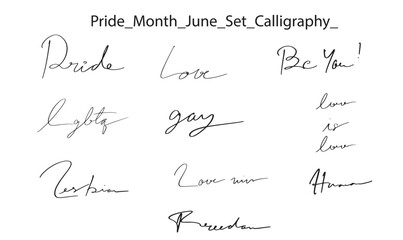 Pride_Month_June_Set_Calligraphy_
Pride
Love
Be You!
lgbtq
gay
love
is
love
Lesbian
Love win
Human
Freedom